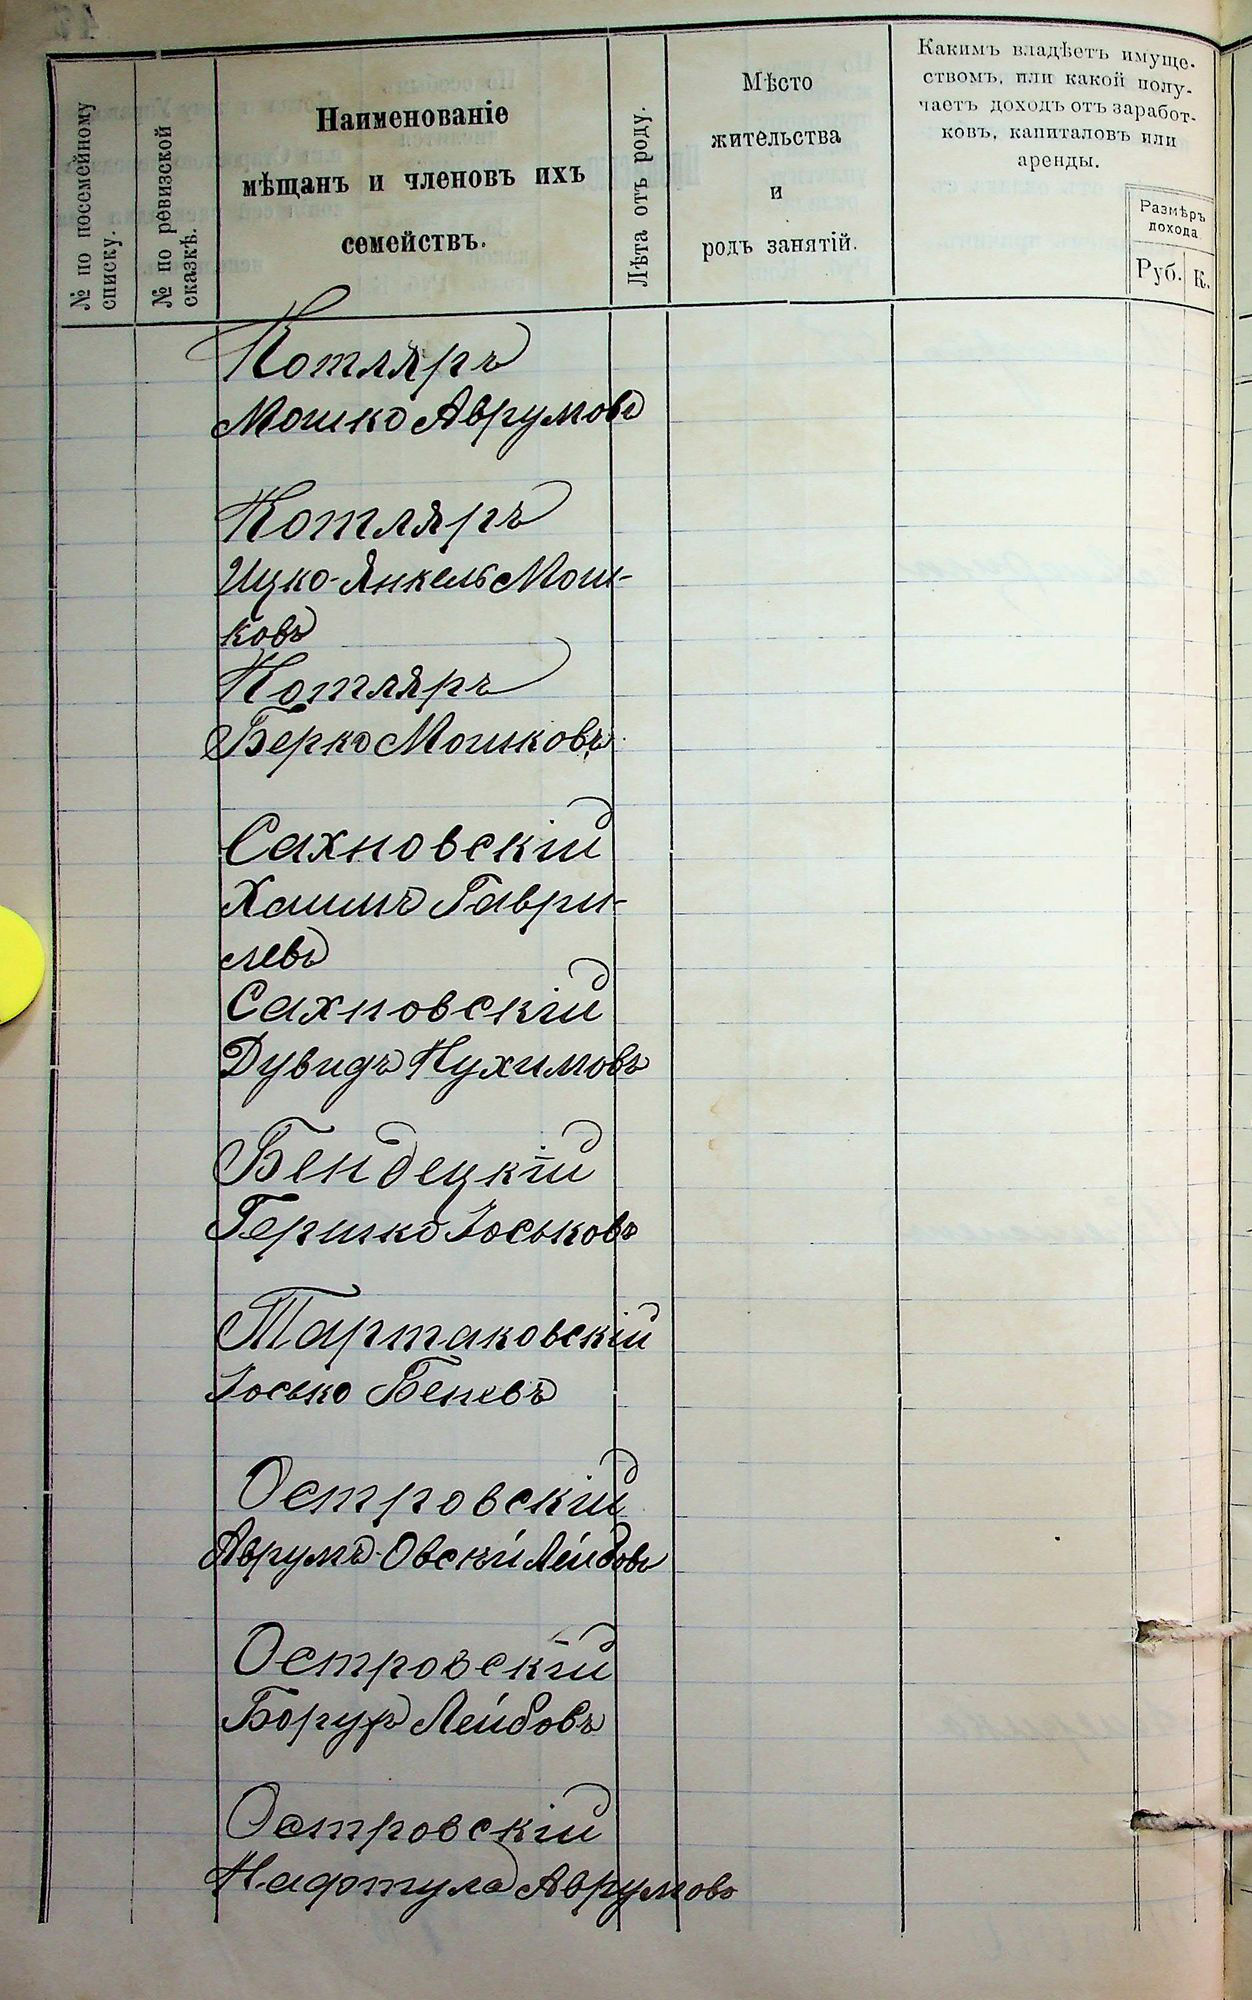 № по посемейному
списку.
№ по ревизской
сказкѣ.
Наименованіе
мѣщанъ и членовъ ихъ
семействъ.
Лѣта отъ роду.
Мѣсто
жительства
и
родъ занятій.
Какимъ владѣетъ имуще-
ствомъ, или какой полу-
чаетъ доходъ отъ заработ-
ковъ, капиталовъ или
аренды.
Размѣръ
дохода
Руб. К.
Котляръ
Мошко Аврумовъ
Котляръ
Ицко-Янкель Мош-
ковъ
Котляръ
Берко Мошковъ
Сахновскій
Хаимъ Гаври-
левъ
Сахновскій
Дувидъ Нухимовъ
Бендецкій
Гершко Іоськовъ
Тартаковскій
Іосько Беневъ
Островскій
Аврумъ-Овсѣй Лейбовъ
Островскій
Борух Лейбовъ
Островскій
Нафтула Аврумовъ